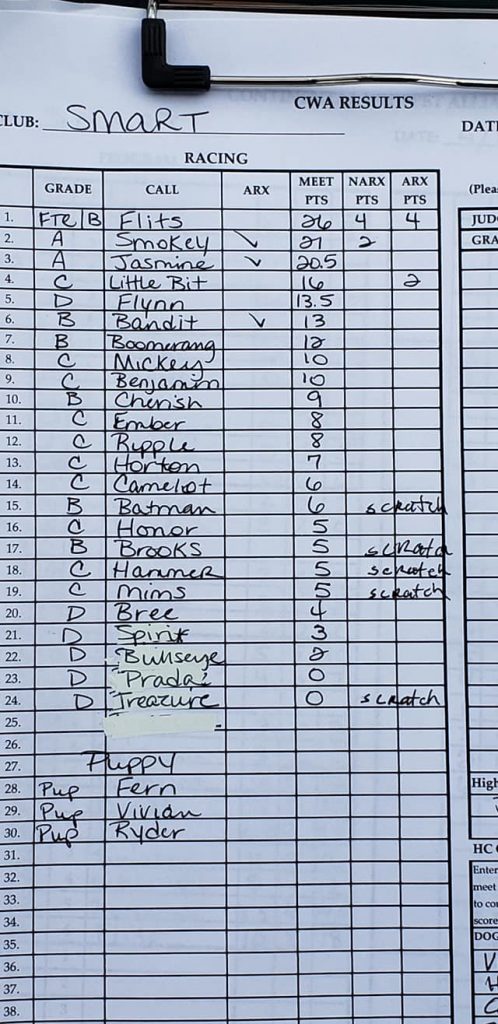 CWA RESULTS
CLUB: SMART
DAT
RACING
GRADE CALL ARX MEET PTS NARX PTS ARX PTS
(Plea
JUD
GRA
1. FTE/B Flits 26 4 4
2. A Smokey ✓ 21 2
3. A Jasmine ✓ 20.5
4. C Little Bit 16 2
5. D Flynn 13.5
6. B Bandit ✓ 13
7. B Boomerang 12
8. C Mickey 10
9. C Benjamin 10
10. B Cherish 9
11. C Ember 8
12. C Ripple 8
13. C Horton 7
14. C Camelot 6
15. B Batman 6 scratch
16. C Honor 5
17. B Brooks 5 scratch
18. C Hammer 5 scratch
19. C Mims 5 scratch
20. D Bree 4
21. D Spirit 3
22. D Bullseye 2
23. D Prada 0
24. D Treazure 0 scratch
25.
26.
27. Puppy
28. Pup Fern
29. Pup Vivian
30. Pup Ryder
31.
32.
33.
34.
35.
36.
37.
38.
High
HC
Enter
meet
to co
score
DOG